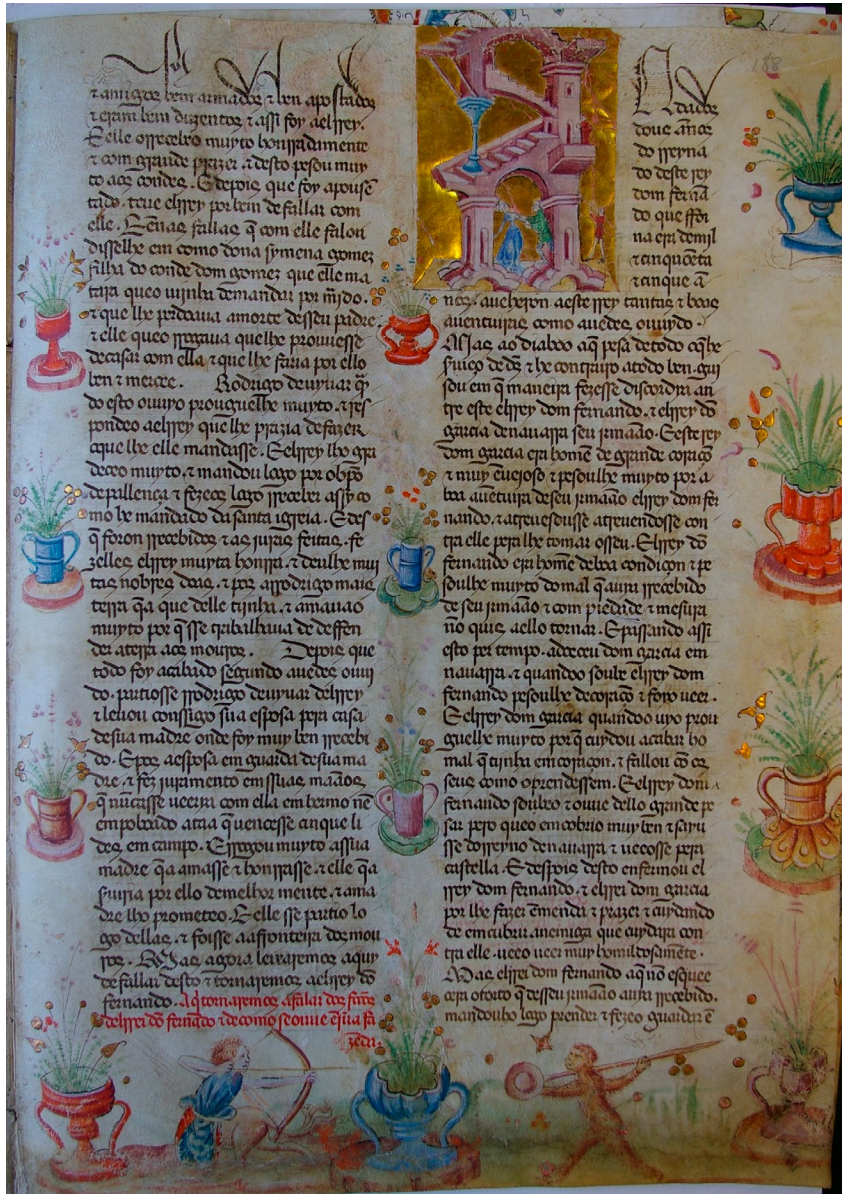 & amigos bem armados & ben apostados
& eram bem duzentos & assi foy ael rrey.
E elle o rrecebeo muyto honrradamente
& com grande prazer. & desto pesou muy
to aos condes. E depois que foy apousē
tado. teue elrrey por bem de fallar com
elle. E ēnas fallas q̄ com elle falou
disselhe em como dona symena gomez
filha do conde dom gomez que elle ma
tara queo vijnha demandar por m̄ido.
& que lhe perdoaua a morte de sseu padre
& elle queo rrogaua quelhe prouuesse
de casar com ella & que lhe faria por ello
ben & mercee. Rodrigo de uyuar q̄
do esto ouuyo prouguelhe muyto. & rres
pondeo ael rrey que lhe prazia de fazer
o que lhe elle mandasse. E elrrey lho gra
deceo muyto. & mandou logo por obp̄o
de pallença & fezeos logo rreceber assy co
mo he mandado da santa igreia. E des
q̄ foron rrecebidos & as juras feitas. fe
zelles elrrey muyta honrra. & deulhe mui
tas nobres doas. & pos a rrodrigo mais
terra q̄ a que delle tijnha. & amauao
muyto por q̄sse trabalhaua de deffen
der a terra aos mouros. Depois que
todo foy acabado segundo auedes ouui
do. partiosse rrodrigo de uyuar delrrey
& leuou conssigo sua esposa pera casa
de sua madre onde foy muy ben rrecebi
do. E pos a esposa em guarda de sua ma
dre. & fez juramento em ssuas maãos
q̄ nūcasse ueerra com ella em hermo nē
em poboado ataa q̄ uencesse cinque li
des em campo. E rrogou muyto assua
madre q̄ a amasse & honrrasse. & elle q̄a
suiria por ello de melhor mente. & a ma
dre lho prometeo. E elle sse partio lo
go dellas. & foisse aa fronteira dos mou
ros. Mas agora leixaremos aquy
de fallar desto & tornaremos ael rrey dō
fernando. Aq̄ tornaremos a falar dos feitos
delrrei dō fernādo & de como se ouue ē sua fa
zeda.
Ndados
doue ānos
do rreyna
do deste rey
dom fernā
do que ffoi
na era de mil
& cinquēeta
& cinque ā
nos. aueheron a este rrey tantas & boas
auenturas como auedes ouuydo.
Mas ao diaboo aq̄ pesa de todo o q̄ he
seruiço de ds̄ & he contrairo a todo ben. gui
sou em q̄ maneira fezesse discordia an
tre este elrrey dom fernando. & elrrey dō
garcia de nauarra seu irmaão. E este rey
dom garcia era homē de grande coraçō
& muy ēuejoso & pesoulhe muyto por a
boa auētuira de seu irmaão elrrey dom fer
nando. & atreuesousse atreuendosse con
tra elle pera lhe tomar o sseu. Elrrey dō
fernando era homē de boa condiçon & pe
soulhe muyto do mal q̄ auia rrecebido
de seu irmaão & com piedade & mesura
nō quis a ello tornar. E passando assi
esto per tempo. adoeceu dom garcia em
nauarra. & quandoo soube elrrey dom
fernando pesoulhe de coraçō & foyo ueer.
E elrrey dom garcia quandoo uyo prou
guelhe muyto por q̄ cuydou acabar ho
mal q̄ tijnha em coraçon. & fallou cō os
seus como o prendessem. E elrrey dom
fernando soubeo & ouue dello grande pe
sar pero queo emcobrio muy ben & sayu
sse do rreyno de nauarra & ueosse pera
castella. E despois desto enfermou el
rrey dom fernando. & elrrei dom garcia
por lhe fazer ēmenda & prazer & cuydando
de emcubrir a nemiga que cuydara con
tra elle. ueeo ueer muy homildosamēte.
Mas elrrei dom fernando aq̄ nō esquee
cera o torto q̄ de sseu irmaão auia rrecebido.
mandouho logo prender & fezeo guardar ē
188